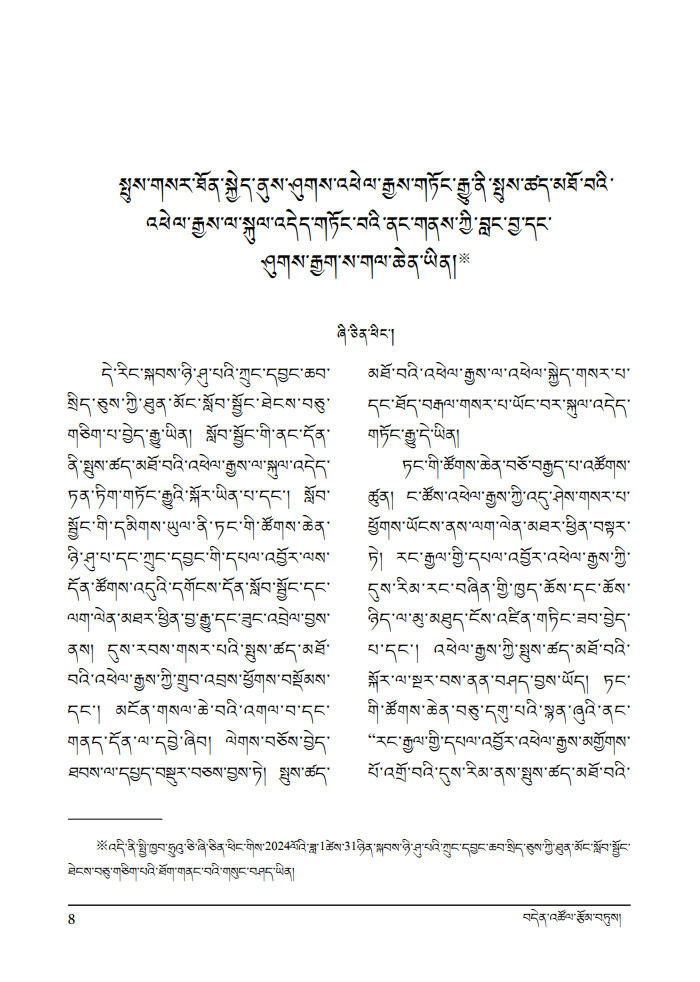 སྤུས་གསར་ཐོན་སྐྱེད་ནུས་ཤུགས་འཕེལ་རྒྱས་གཏོང་རྒྱུ་ནི་སྤུས་ཚད་མཐོ་བའི་
འཕེལ་རྒྱས་ལ་སྐུལ་འདེད་གཏོང་བའི་ནང་གནས་ཀྱི་བླང་བྱ་དང་
ཤུགས་རྒྱག་ས་གལ་ཆེན་ཡིན།※
ཞི་ཅིན་ཕིང་།
དེ་རིང་སྐབས་ཉི་ཤུ་པའི་ཀྲུང་དབྱང་ཆབ་
སྲིད་ཅུས་ཀྱི་ཐུན་མོང་སློབ་སྦྱོང་ཐེངས་བཅུ་
གཅིག་པ་བྱེད་རྒྱུ་ཡིན། སློབ་སྦྱོང་གི་ནང་དོན་
ནི་སྤུས་ཚད་མཐོ་བའི་འཕེལ་རྒྱས་ལ་སྐུལ་འདེད་
ཏན་ཏིག་གཏོང་རྒྱུའི་སྐོར་ཡིན་པ་དང་། སློབ་
སྦྱོང་གི་དམིགས་ཡུལ་ནི་ཏང་གི་ཚོགས་ཆེན་
ཉི་ཤུ་པ་དང་ཀྲུང་དབྱང་གི་དཔལ་འབྱོར་ལས་
དོན་ཚོགས་འདུའི་དགོངས་དོན་སློབ་སྦྱོང་དང་
ལག་ལེན་མཐར་ཕྱིན་བྱ་རྒྱུ་དང་ཟུང་འབྲེལ་བྱས་
ནས། དུས་རབས་གསར་པའི་སྤུས་ཚད་མཐོ་
བའི་འཕེལ་རྒྱས་ཀྱི་གྲུབ་འབྲས་ཕྱོགས་བསྡོམས་
དང་། མངོན་གསལ་ཆེ་བའི་འགལ་བ་དང་
གནད་དོན་ལ་དབྱེ་ཞིབ། ལེགས་བཅོས་བྱེད་
ཐབས་ལ་དཔྱད་བསྡུར་བཅས་བྱས་ཏེ། སྤུས་ཚད་
མཐོ་བའི་འཕེལ་རྒྱས་ལ་འཕེལ་སྐྱེད་གསར་པ་
དང་ཐོད་བརྒལ་གསར་པ་ཡོང་བར་སྐུལ་འདེད་
གཏོང་རྒྱུ་དེ་ཡིན།
ཏང་གི་ཚོགས་ཆེན་བཅོ་བརྒྱད་པ་འཚོགས་
ཚུན། ང་ཚོས་འཕེལ་རྒྱས་ཀྱི་འདུ་ཤེས་གསར་པ་
ཕྱོགས་ཡོངས་ནས་ལག་ལེན་མཐར་ཕྱིན་བསྟར་
ཏེ། རང་རྒྱལ་གྱི་དཔལ་འབྱོར་འཕེལ་རྒྱས་ཀྱི་
དུས་རིམ་རང་བཞིན་གྱི་ཁྱད་ཆོས་དང་ཆོས་
ཉིད་ལ་མུ་མཐུད་ངོས་འཛིན་གཏིང་ཟབ་བྱེད་
པ་དང་། འཕེལ་རྒྱས་ཀྱི་སྤུས་ཚད་མཐོ་བའི་
སྐོར་ལ་སྔར་བས་ནན་བཤད་བྱས་ཡོད། ཏང་
གི་ཚོགས་ཆེན་བཅུ་དགུ་པའི་སྙན་ཞུའི་ནང་
“རང་རྒྱལ་གྱི་དཔལ་འབྱོར་འཕེལ་རྒྱས་མགྱོགས་
པོ་འགྲོ་བའི་དུས་རིམ་ནས་སྤུས་ཚད་མཐོ་བའི་
※འདི་ནི་སྤྱི་ཁྱབ་ཧྲུའུ་ཅི་ཞི་ཅིན་ཕིང་གིས་2024ལོའི་ཟླ་1ཚེས་31ཉིན་སྐབས་ཉི་ཤུ་པའི་ཀྲུང་དབྱང་ཆབ་སྲིད་ཅུས་ཀྱི་ཐུན་མོང་སློབ་སྦྱོང་
ཐེངས་བཅུ་གཅིག་པའི་ཐོག་གནང་བའི་གསུང་བཤད་ཡིན།
8
བདེན་འཚོལ་རྩོམ་བཏུས།